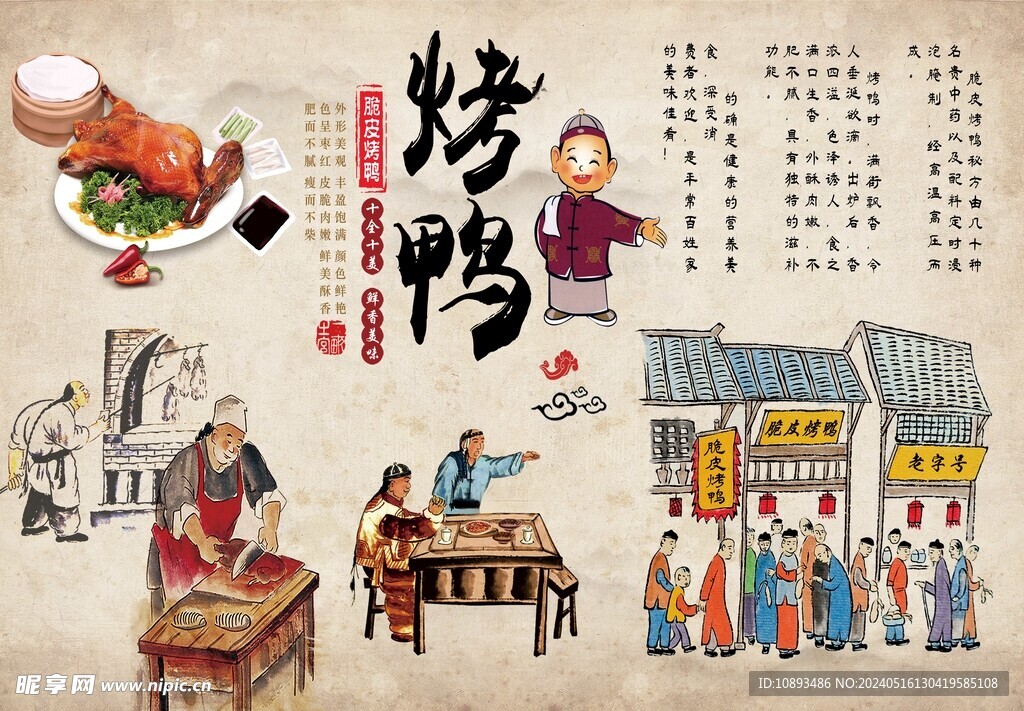 烤鸭
脆皮烤鸭
十全十美
鲜香美味
外形美观 丰盈饱满 颜色鲜艳
色呈枣红 皮脆肉嫩 鲜美酥香
肥而不腻 瘦而不柴
脆皮烤鸭秘方由几十种
名贵中药以及配料定时浸
泡腌制，经高温高压而
成。
烤鸭时，满街飘香，令
人垂涎欲滴，出炉后，香
浓四溢，色泽诱人，食之
满口生香，外酥肉嫩，不
肥不腻，具有独特的滋补
功能。
的确是健康的营养美
食，深受消
费者欢迎，是平常百姓家
的美味佳肴！
脆皮烤鸭
脆皮烤鸭
老字号
昵享网 www.nipic.cn
ID:10893486 NO:20240516130419585108